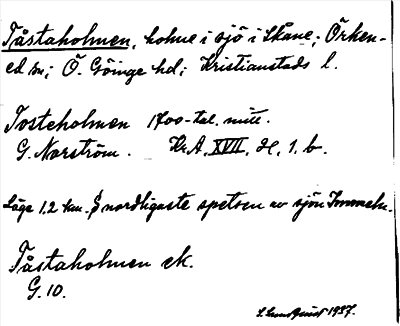 Tåstaholmen, holme i sjö i Skåne; Örken-
ed sn; Ö. Göinge hd; Kristianstads l.
Tosteholmen 1700-tal. mitt.
G. Norström. Kr.A. XVII, H, 1. b.
Läge 1,2 km. S nordligaste spetsen av sjön Immeln.
Tåstaholmen ek.
G. 10.
S. Lundquist 1937.